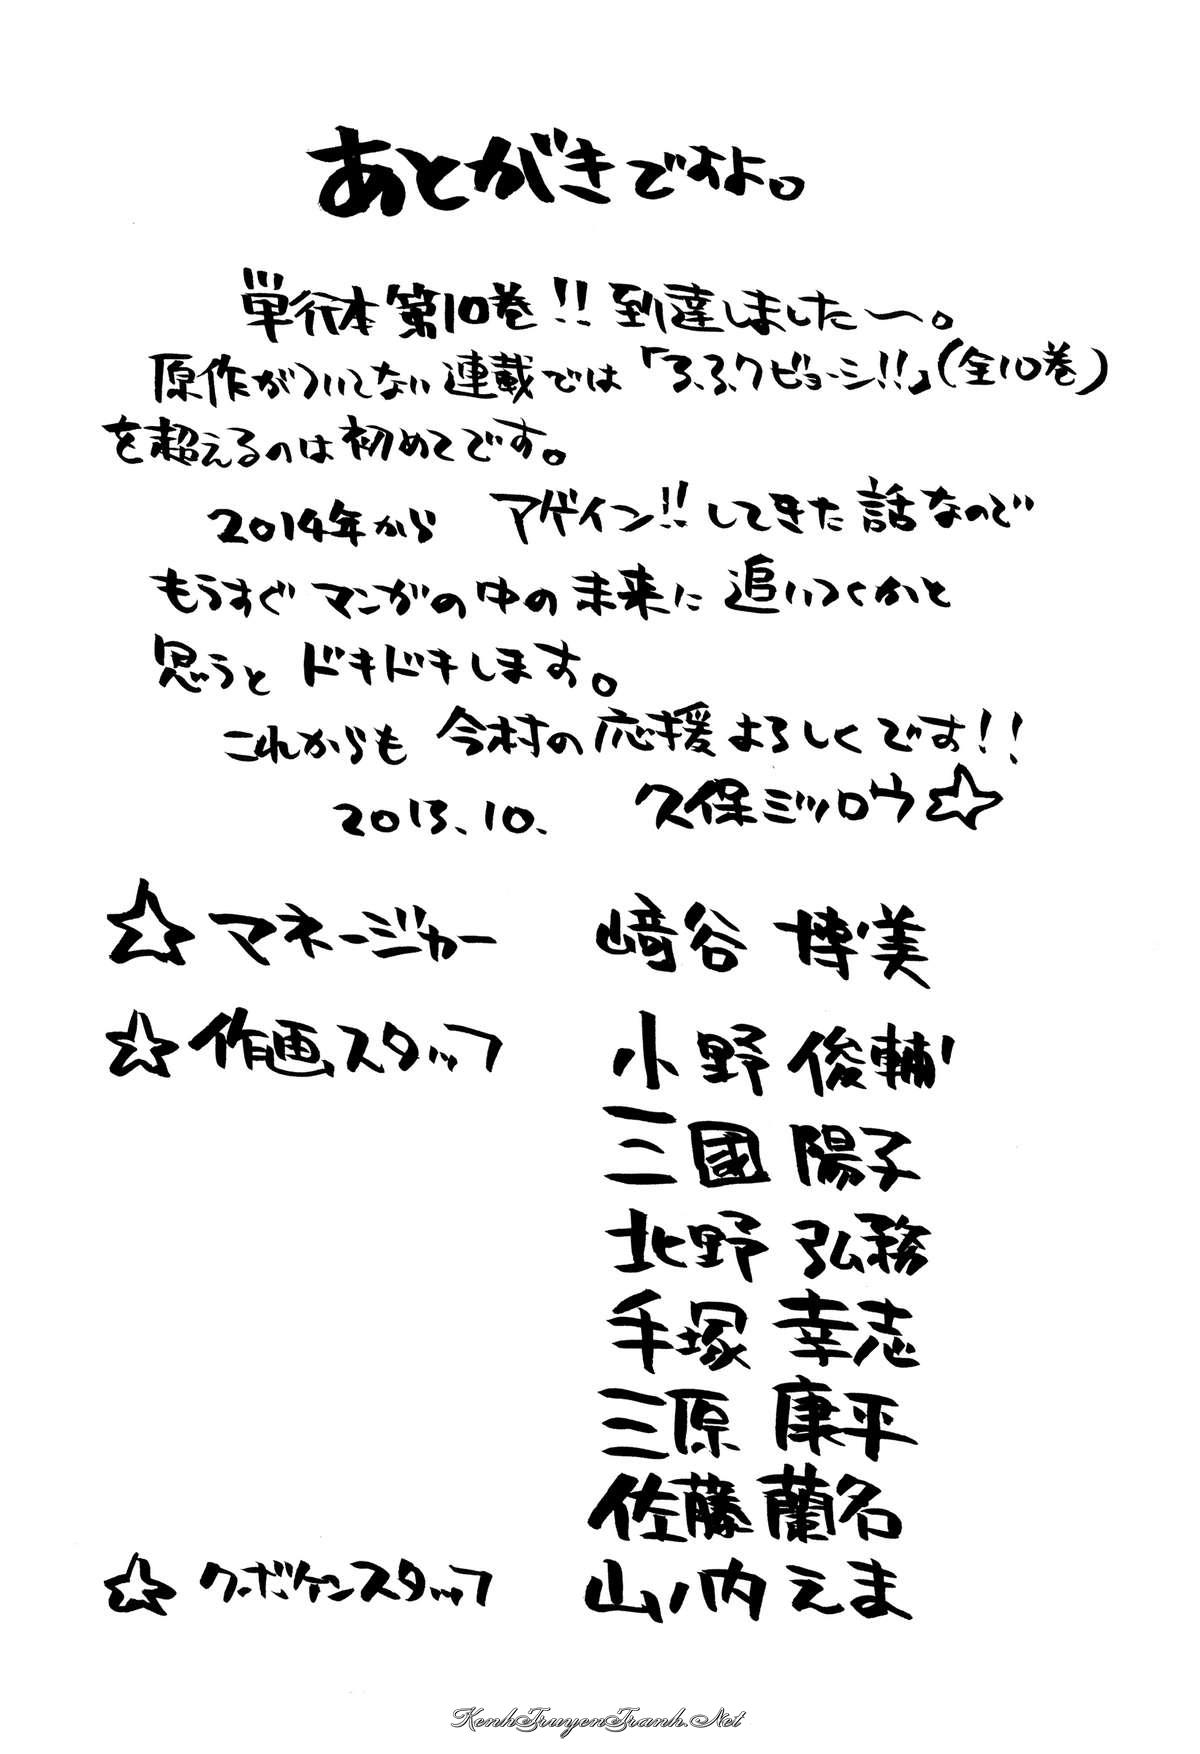 あとがきですよ。
単行本第10巻!!到達しました〜。
原作がついてない連載では「3.3.7ビョーシ!!」(全10巻)
を超えるのは初めてです。
2014年から アゲイン!!してきた話なので
もうすぐマンガの中の未来に追いつくかと
思うと ドキドキします。
これからも 今村の応援よろしくです!!
2013.10. 久保ミツロウ☆
☆マネージャー 﨑谷 博美
☆作画スタッフ 小野 俊輔
三國 陽子
北野 弘務
手塚 幸志
三原 康平
佐藤 蘭名
☆クボケンスタッフ 山ノ内 えま
KenhTruyenTranh.Net